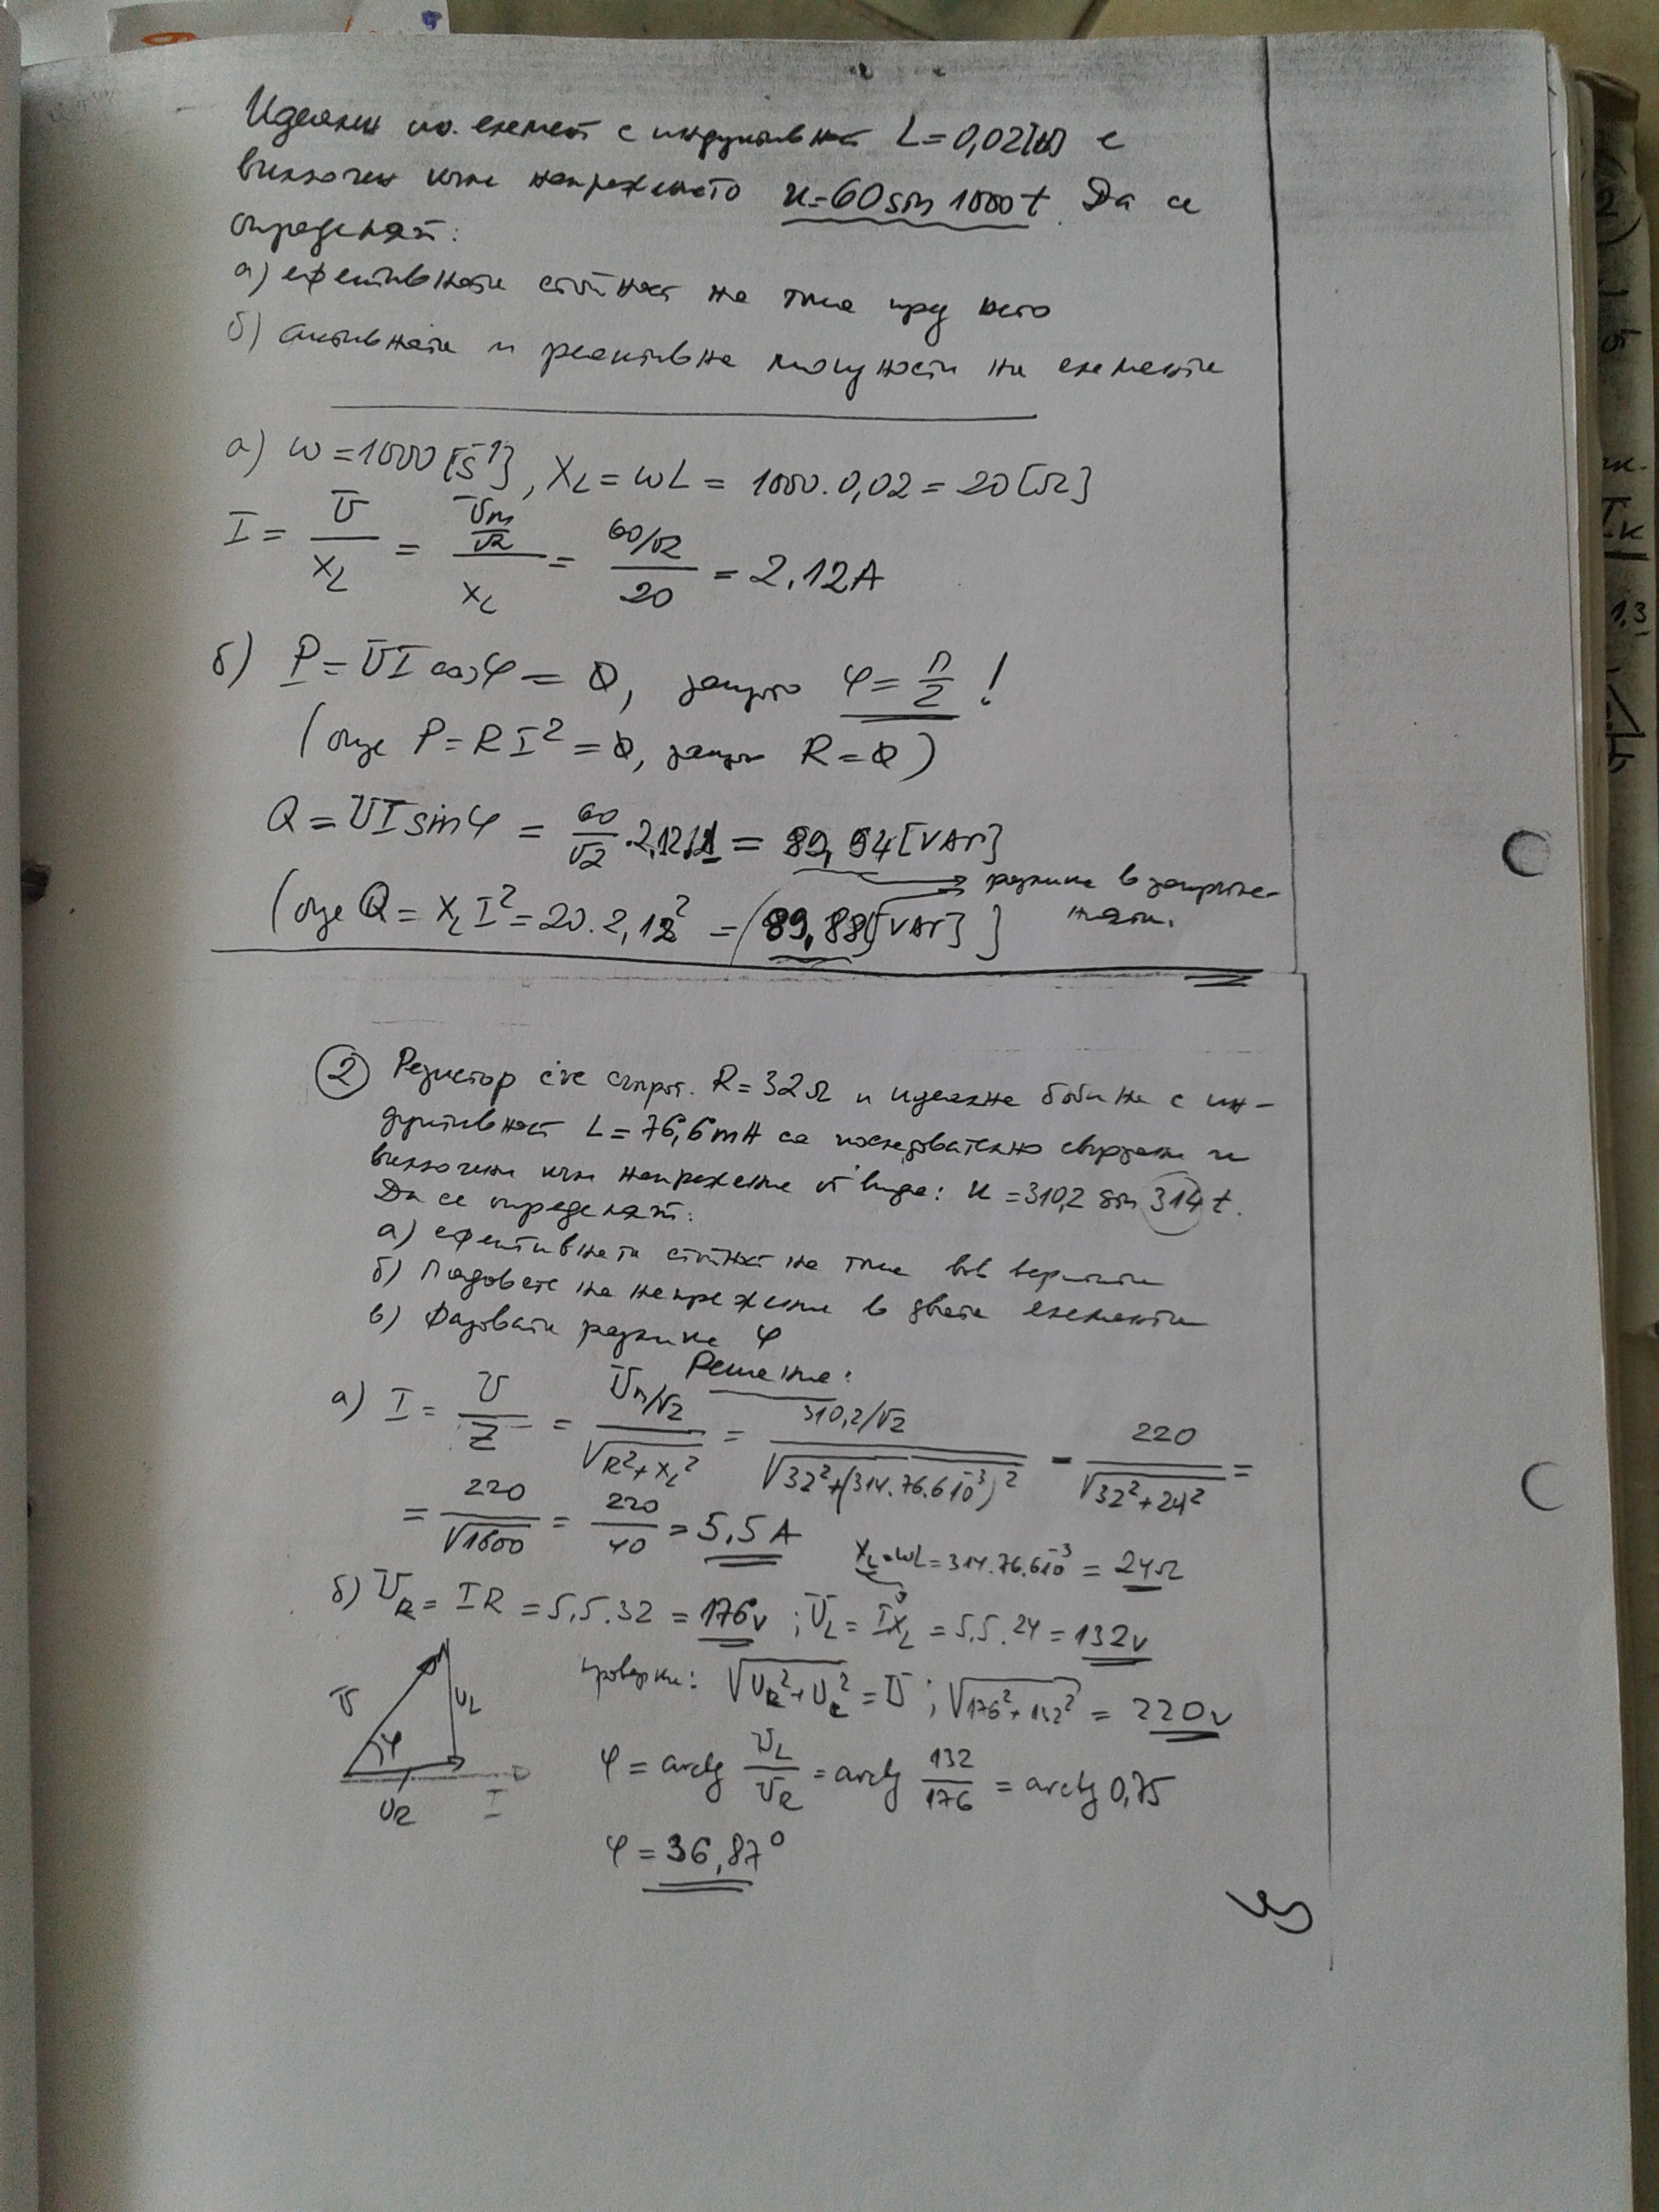 Идеален ел. елемент с индуктивност L=0,02[H] е
включен към напрежението u=60sin1000t. Да се
определят:
а) ефективната стойност на тока през него
б) активната и реактивна мощности на елемента
а) ω=1000[s⁻¹], X_L=ωL=1000.0,02=20[Ω]
I = U/X_L = (Um/√2)/X_L = (60/√2)/20 = 2.12A
б) P=UIcosφ=0, защото φ=π/2 !
(още P=RI²=0, защото R=0)
Q=UIsinφ = 60/√2 .2,12.1 = 89,94[VAr]
разлика в закръгле-
(още Q=X_L I²=20.2,12² = (89,88)[VAr]) нията.
② Резистор със съпрот. R=32Ω и идеална бобина с ин-
дуктивност L=76,6mH са последователно свързани и
включени към напрежение от вида: u=310,2 sin 314t.
Да се определят:
а) ефективната стойност на тока във веригата
б) Падовете на напрежение в двата елемента
в) Фазовата разлика φ
Решение:
а) I = U/Z = (Um/√2)/√(R²+X_L²) = (310,2/√2)/√(32²+(314.76.6 10⁻³)²) = 220/√(32²+24²) =
= 220/√1600 = 220/40 = 5.5A
X_L=ωL=314.76.6 10⁻³ = 24Ω
б) U_R = IR = 5,5.32 = 176V ; U_L = IX_L = 5,5.24 = 132V
проверка: √(U_R²+U_L²) = U ; √(176²+132²) = 220V
U U_L φ U_R I
φ = arctg U_L/U_R = arctg 132/176 = arctg 0,75
φ = 36,87°